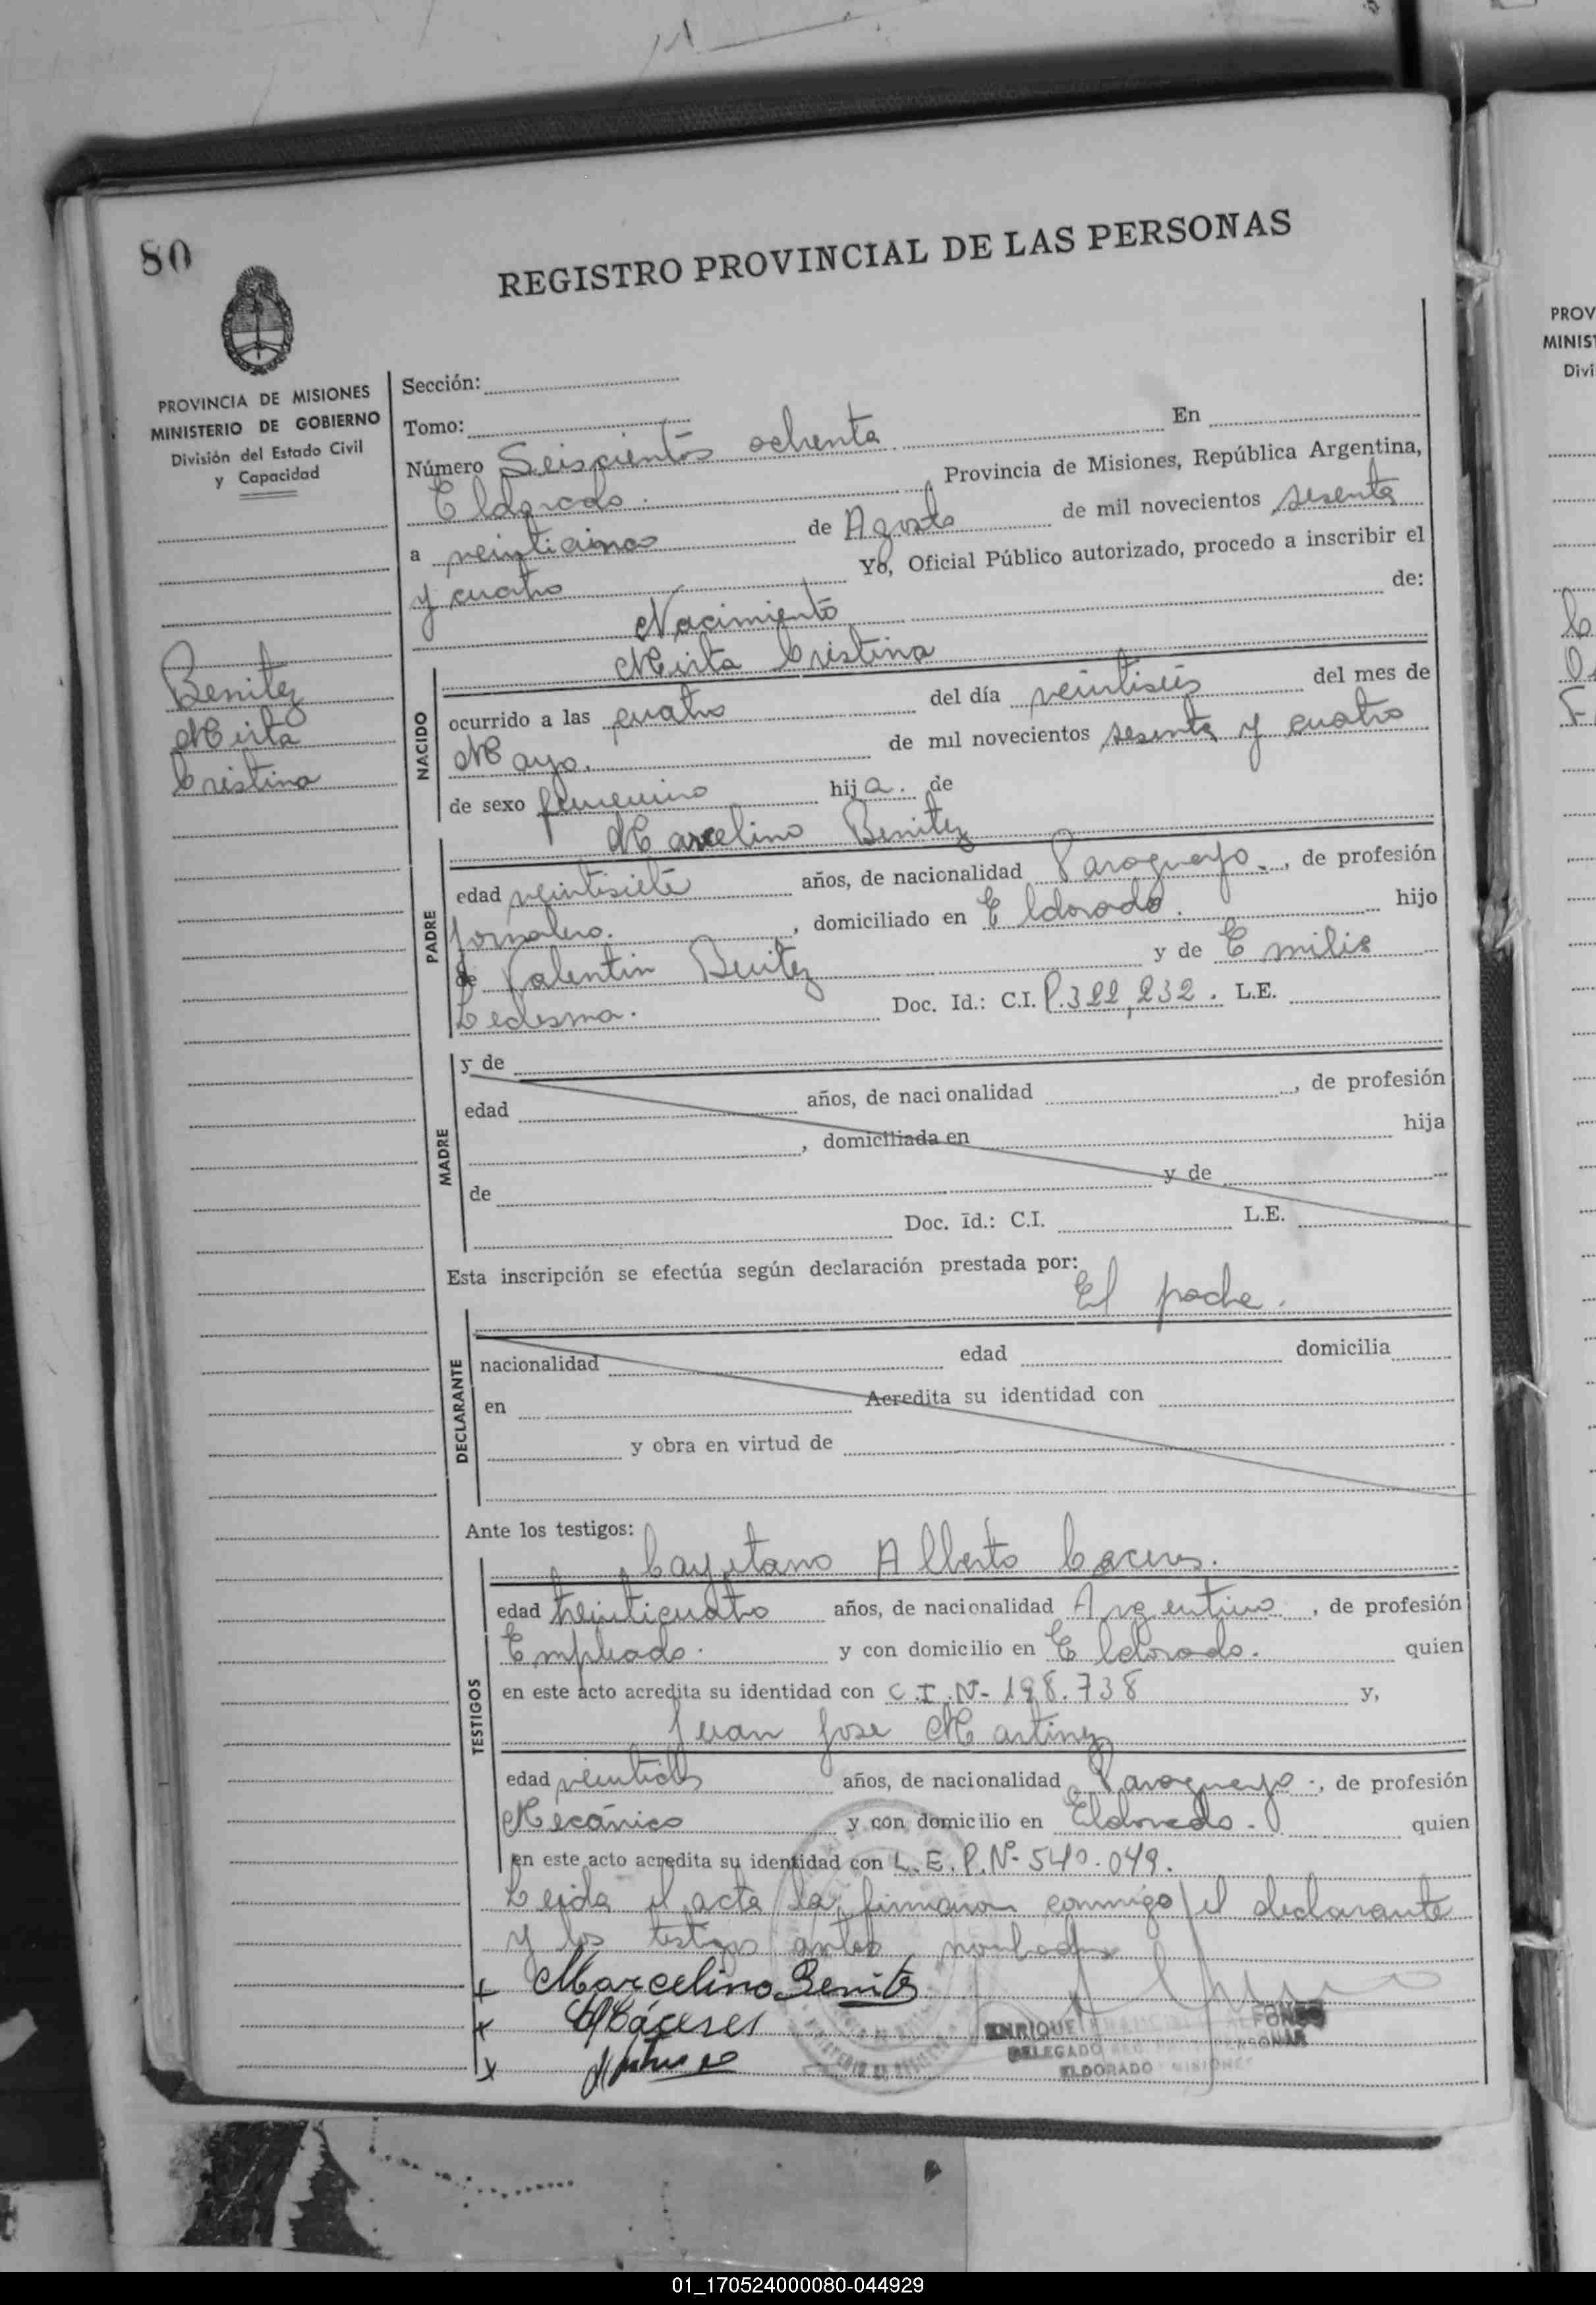 80
REGISTRO PROVINCIAL DE LAS PERSONAS
PROVINCIA DE MISIONES
MINISTERIO DE GOBIERNO
División del Estado Civil
y Capacidad
Benitez
Mirta
Cristina
Sección:
Tomo:
Número Seiscientos ochenta En
Eldorado. Provincia de Misiones, República Argentina,
a veinticinco de Agosto de mil novecientos sesenta
y cuatro Yo, Oficial Público autorizado, procedo a inscribir el
Nacimiento de:
Mirta Cristina
NACIDO
ocurrido a las cuatro del día veintiseis del mes de
Mayo. de mil novecientos sesenta y cuatro
de sexo femenino hija. de
Marcelino Benitez
PADRE
edad veintisiete años, de nacionalidad Paraguayo., de profesión
Jornalero. , domiciliado en Eldorado. hijo
de Valentin Benitez y de Emilia
Ledesma. Doc. Id.: C.I. P.322,232. L.E.
MADRE
y de
edad años, de nacionalidad , de profesión
, domiciliada en hija
de y de
Doc. Id.: C.I. L.E.
Esta inscripción se efectúa según declaración prestada por:
El padre.
DECLARANTE
nacionalidad edad domicilia
en Acredita su identidad con
y obra en virtud de
Ante los testigos:
Cayetano Alberto Caceres.
TESTIGOS
edad años, de nacionalidad Argentino , de profesión
Empleado. y con domicilio en Eldorado. quien
en este acto acredita su identidad con C.I.Nº 198.738 y,
Juan Jose Martinez
edad veintidos años, de nacionalidad Paraguayo., de profesión
Mecánico y con domicilio en Eldorado. quien
en este acto acredita su identidad con L.E.P.Nº 540.049.
Leida el acta la firmaron conmigo el declarante
y los testigos antes nombados
x Marcelino Benitez
x Cáceres
x
ENRIQUE FRANCISCO ALFONSO
DELEGADO REG. PROV. PERSONAS
ELDORADO MISIONES
PROV
MINIST
Divi
01_170524000080-044929